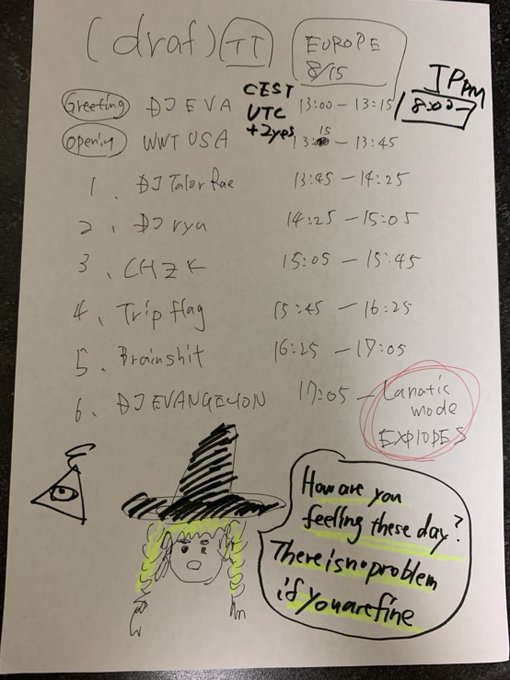 (draf) TT
EUROPE
8/15
JP PM
8:00-
CEST
UTC
+2yes
Greeting DJ EVA 13:00 - 13:15
Opening WWT USA 13:15 - 13:45
1. DJ Talor Rae 13:45 - 14:25
2. DJ ryu 14:25 - 15:05
3. CHZK 15:05 - 15:45
4. Trip flag 15:45 - 16:25
5. Brainshit 16:25 - 17:05
6. DJ EVANGELION 17:05 - Lanatic
mode
EXPLODES
How are you
feelling these day?
There is no problem
if you are fine